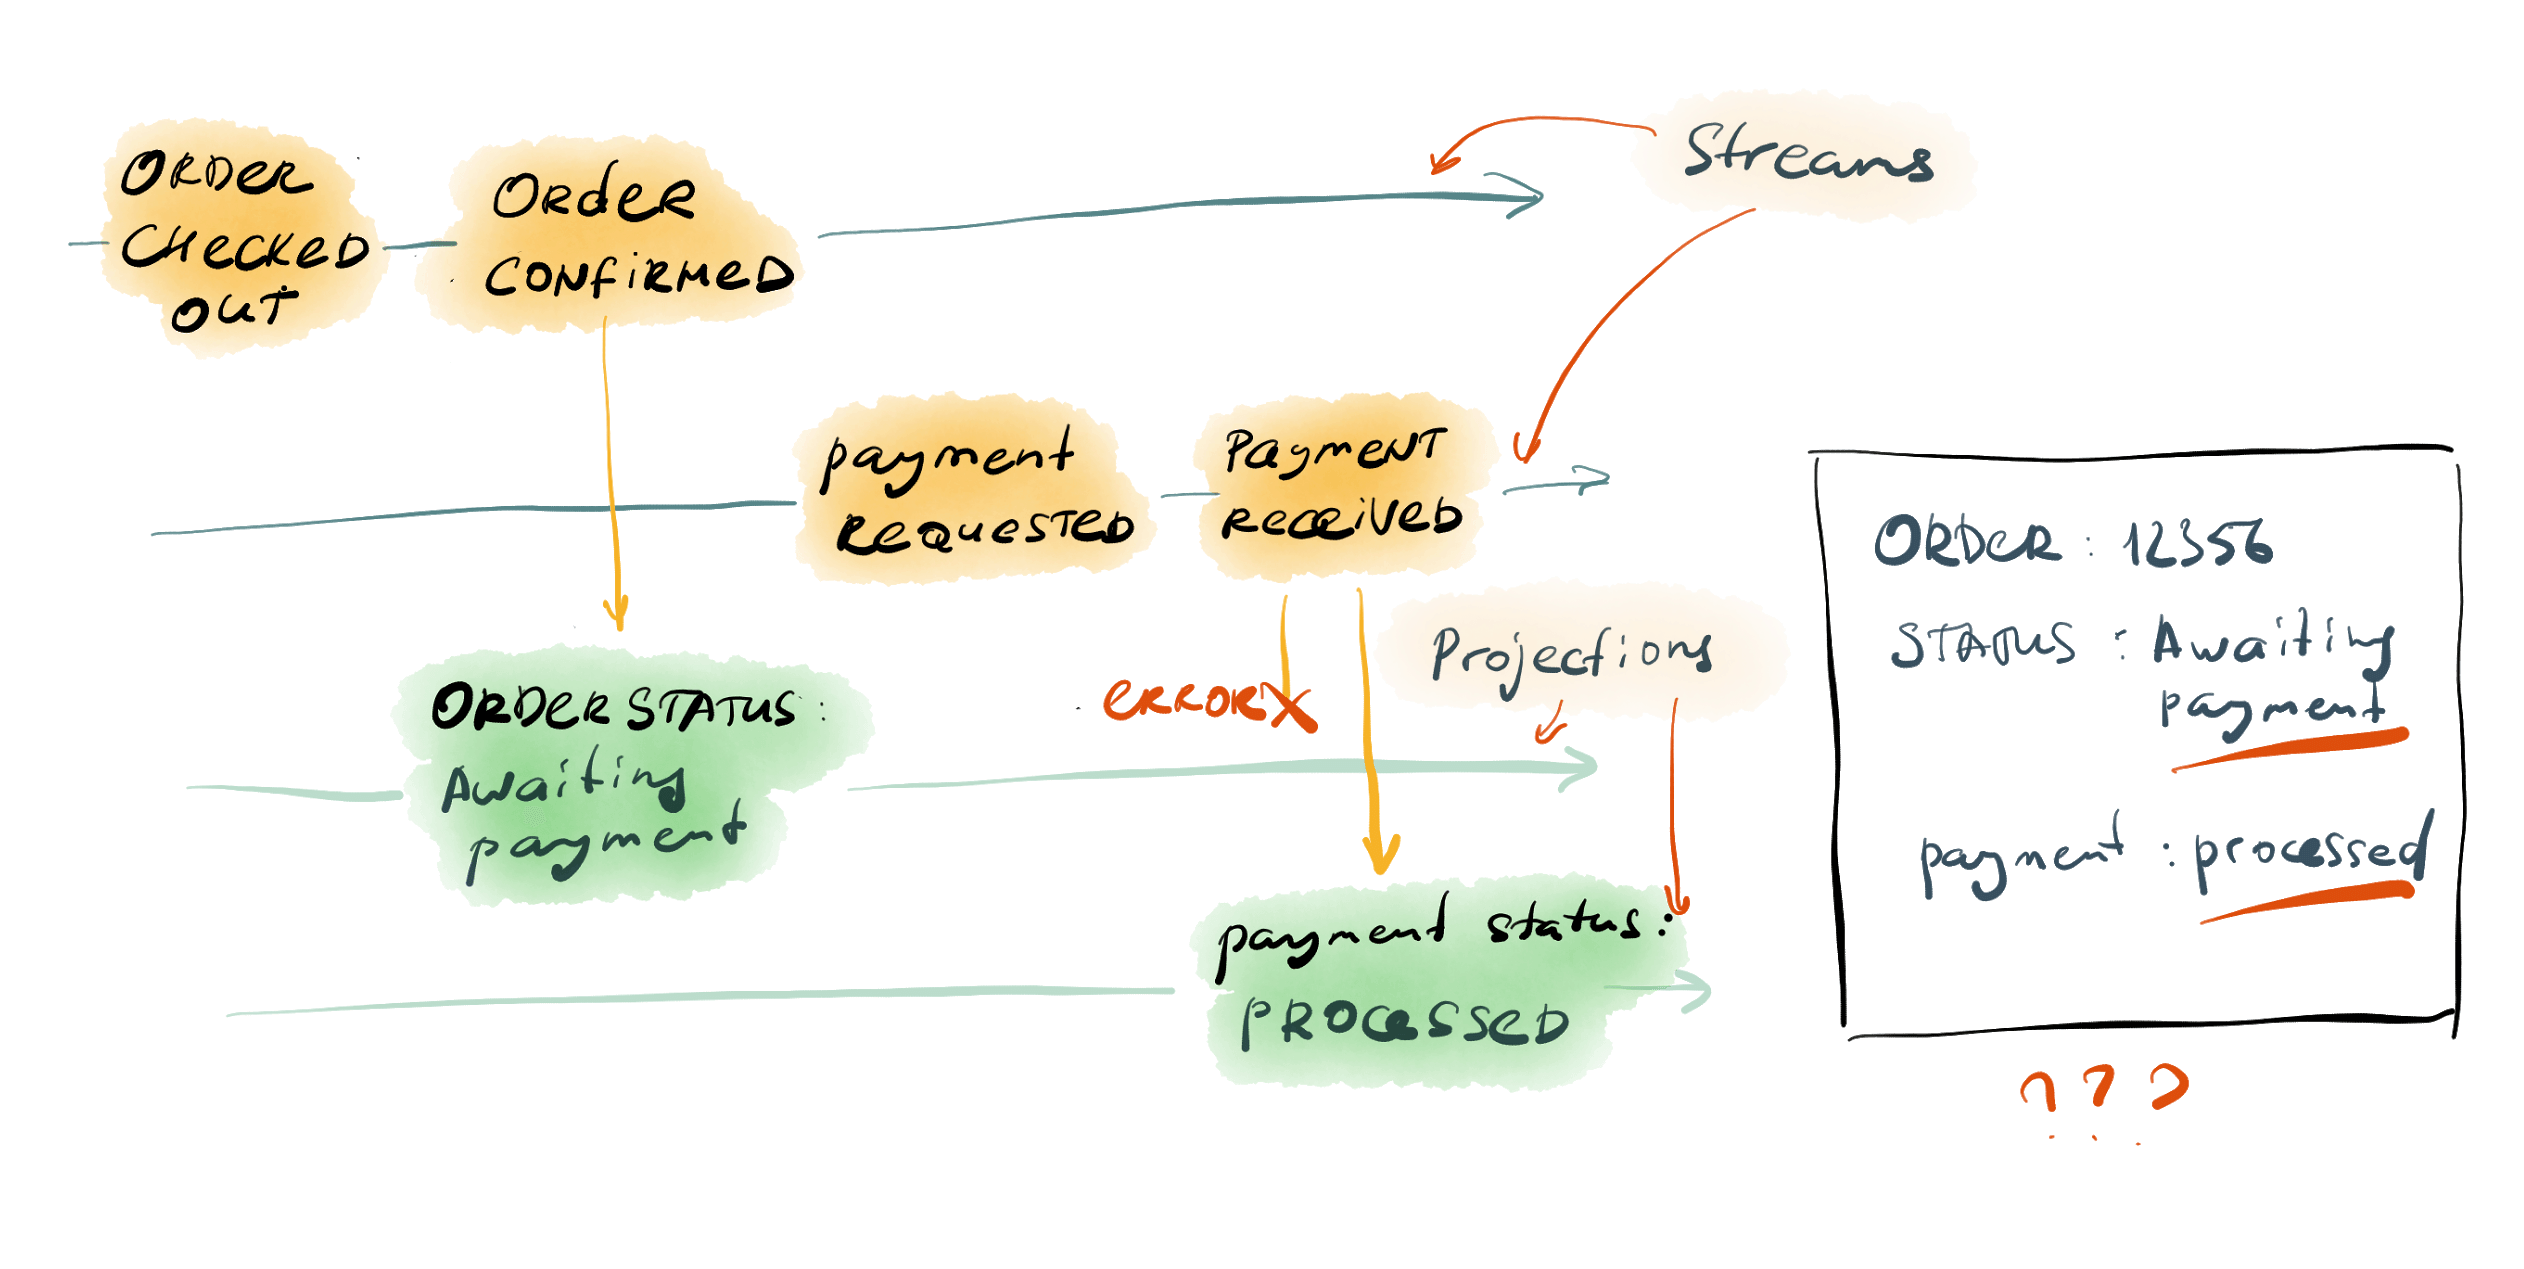 ORDER
CHECKED
OUT
Order
CONFIRMED
Streams
payment
REQUESTED
PAYMENT
RECEIVED
Projections
ERROR
ORDER STATUS:
Awaiting
payment
payment status:
PROCESSED
ORDER: 12356
STATUS: Awaiting
payment
payment: processed
???